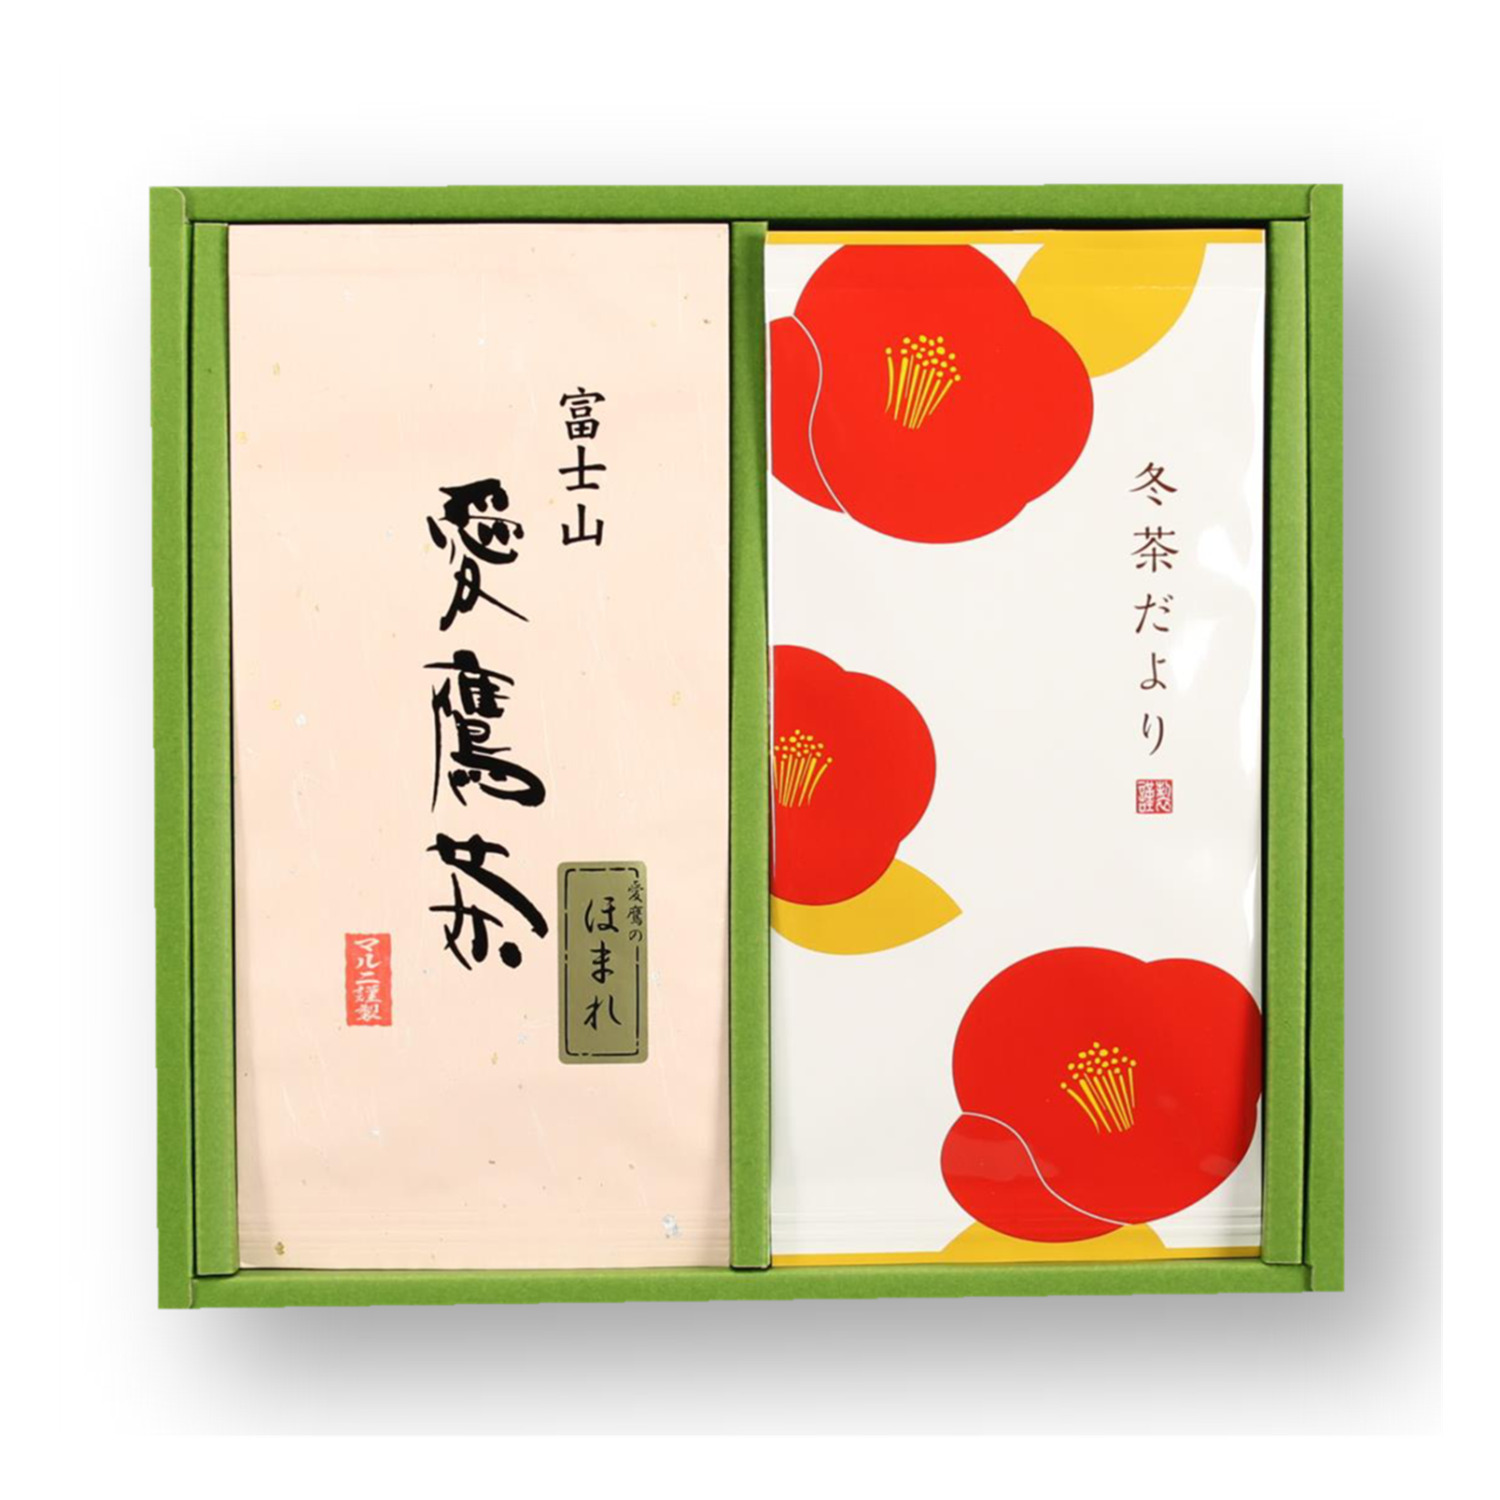 富士山
愛鷹茶
愛鷹の
ほまれ
マルニ謹製
冬茶だより
謹製